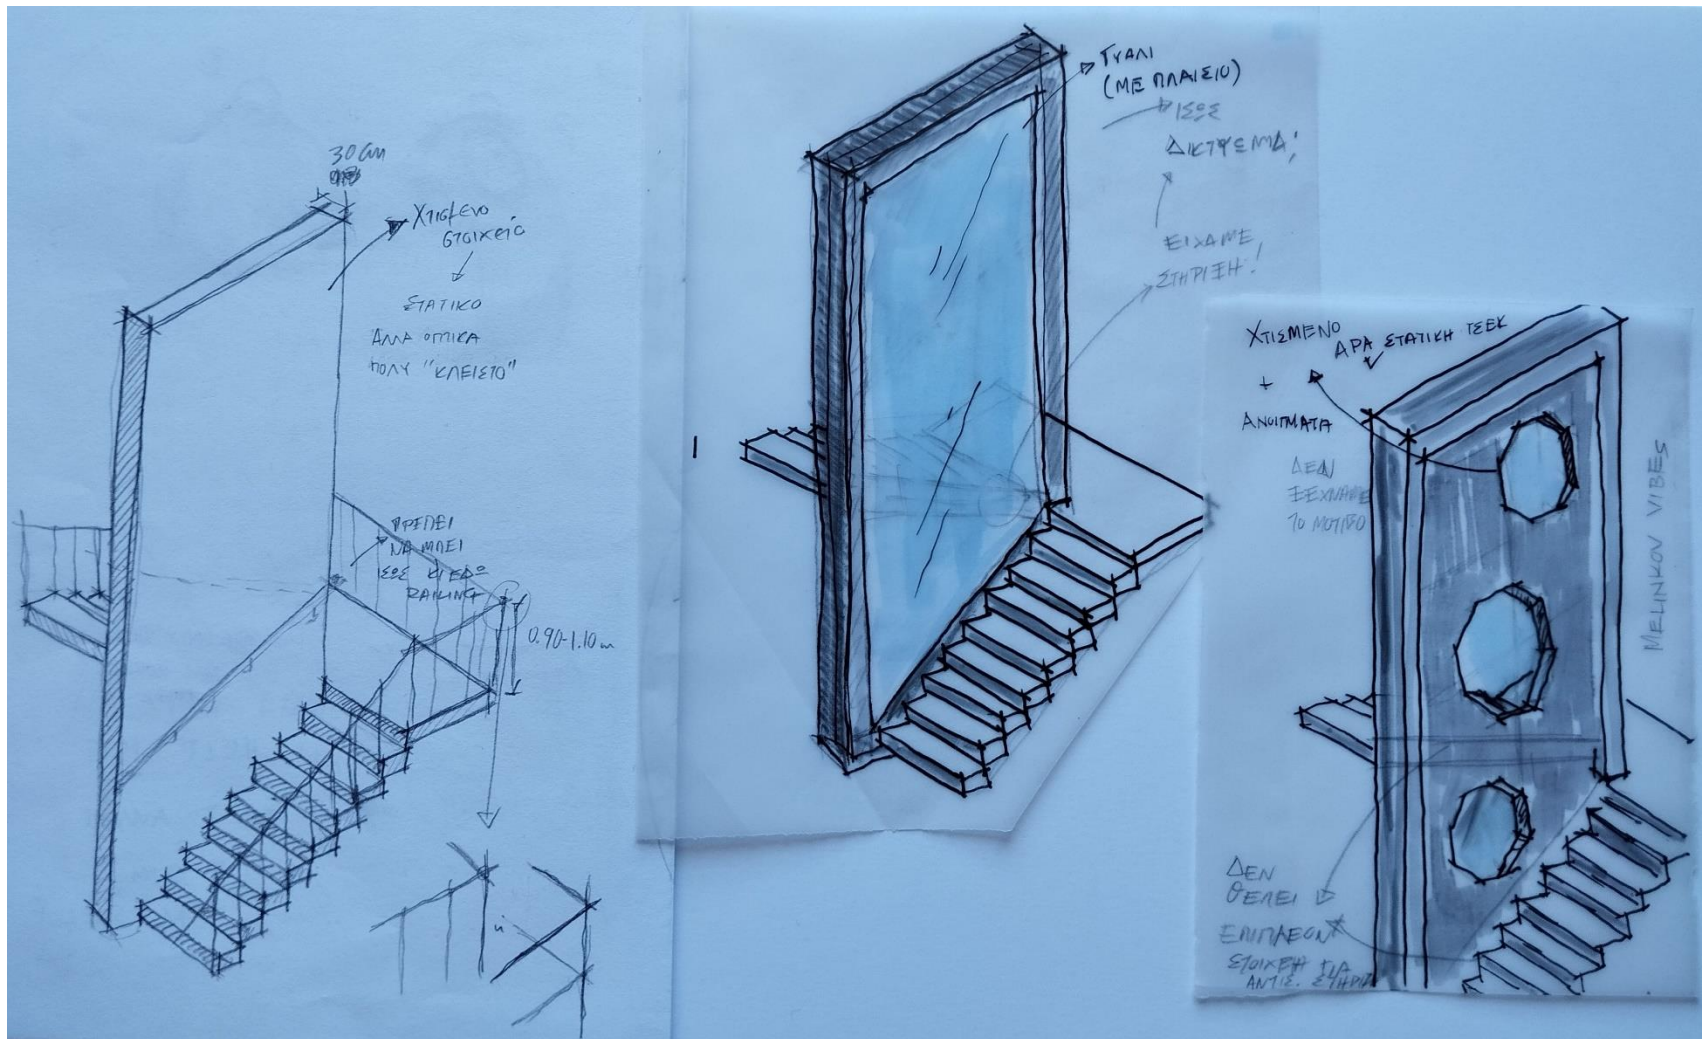 30 cm
Χτισμένο
στοιχείο
ΣΤΑΤΙΚΟ
ΑΛΛΑ ΟΠΤΙΚΑ
ΠΟΛΥ "ΚΛΕΙΣΤΟ"
ΠΡΕΠΕΙ
ΝΑ ΜΠΕΙ
ΙΣΩΣ ΚΙ ΕΔΩ
RAILING
0.90-1.10 m
ή
ΓΥΑΛΙ
(ΜΕ ΠΛΑΙΣΙΟ)
ΙΣΩΣ
ΔΙΚΤΥΩΜΑ;
ΕΙΧΑΜΕ
ΣΤΗΡΙΞΗ!
ΧΤΙΣΜΕΝΟ
ΑΡΑ ΣΤΑΤΙΚΗ ΤΣΕΚ
+
ΑΝΟΙΓΜΑΤΑ
ΔΕΝ
ΞΕΧΝΑΜΕ
ΤΟ ΜΟΤΙΒΟ
MELINKOV VIBES
ΔΕΝ
ΘΕΛΕΙ
ΕΠΙΠΛΕΟΝ
ΣΤΟΙΧΕΙΑ ΓΙΑ
ΑΝΤΙΣ.